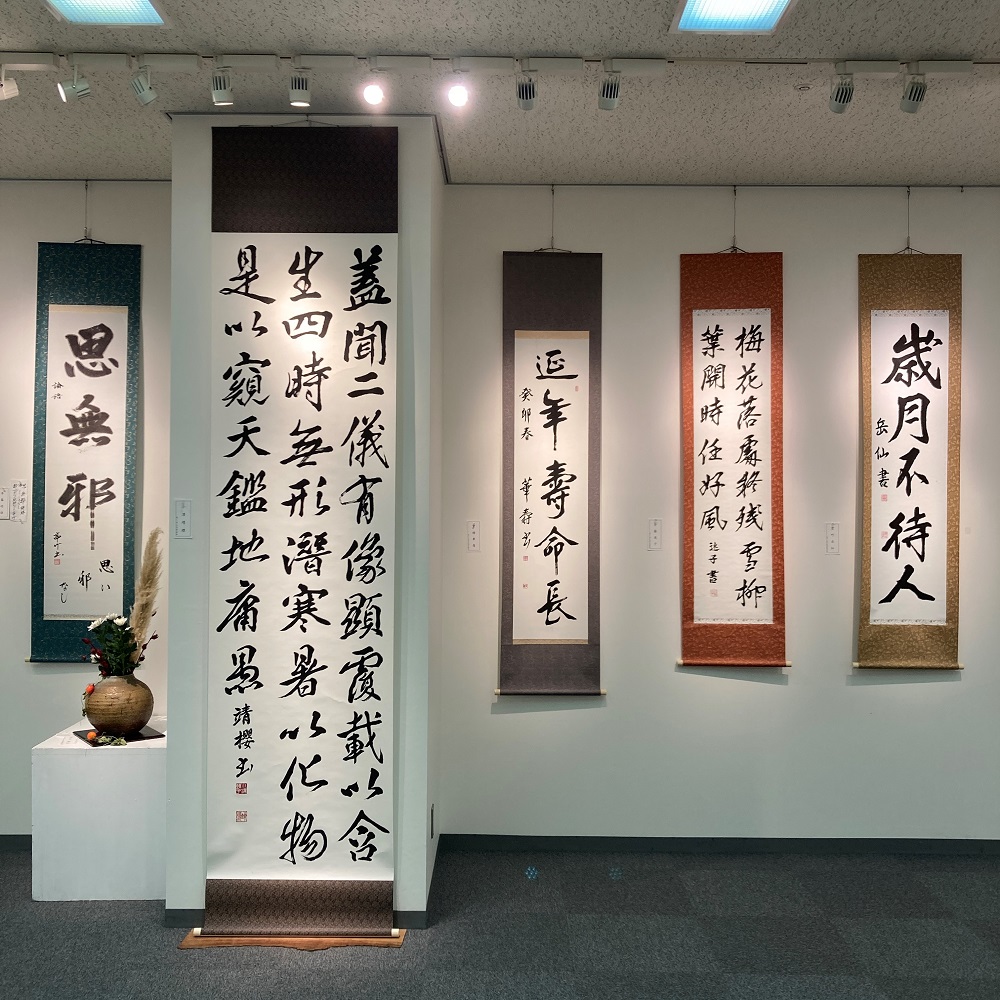 歳月不待人
岳仙書
梅花落處疑残雪柳
葉開時任好風
延年壽命長
癸卯春
華寿書
蓋聞二儀有像顯覆載以含
生四時無形潛寒暑以化物
是以窺天鑑地庸愚
靖櫻書
思無邪
論語
思い
邪
なし